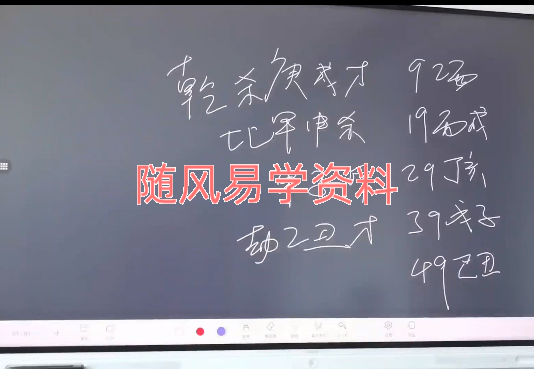 乾 杀庚戌才 9乙酉
比甲申杀 19丙戌
随风易学资料 29丁亥
劫乙丑才 39戊子
49己丑